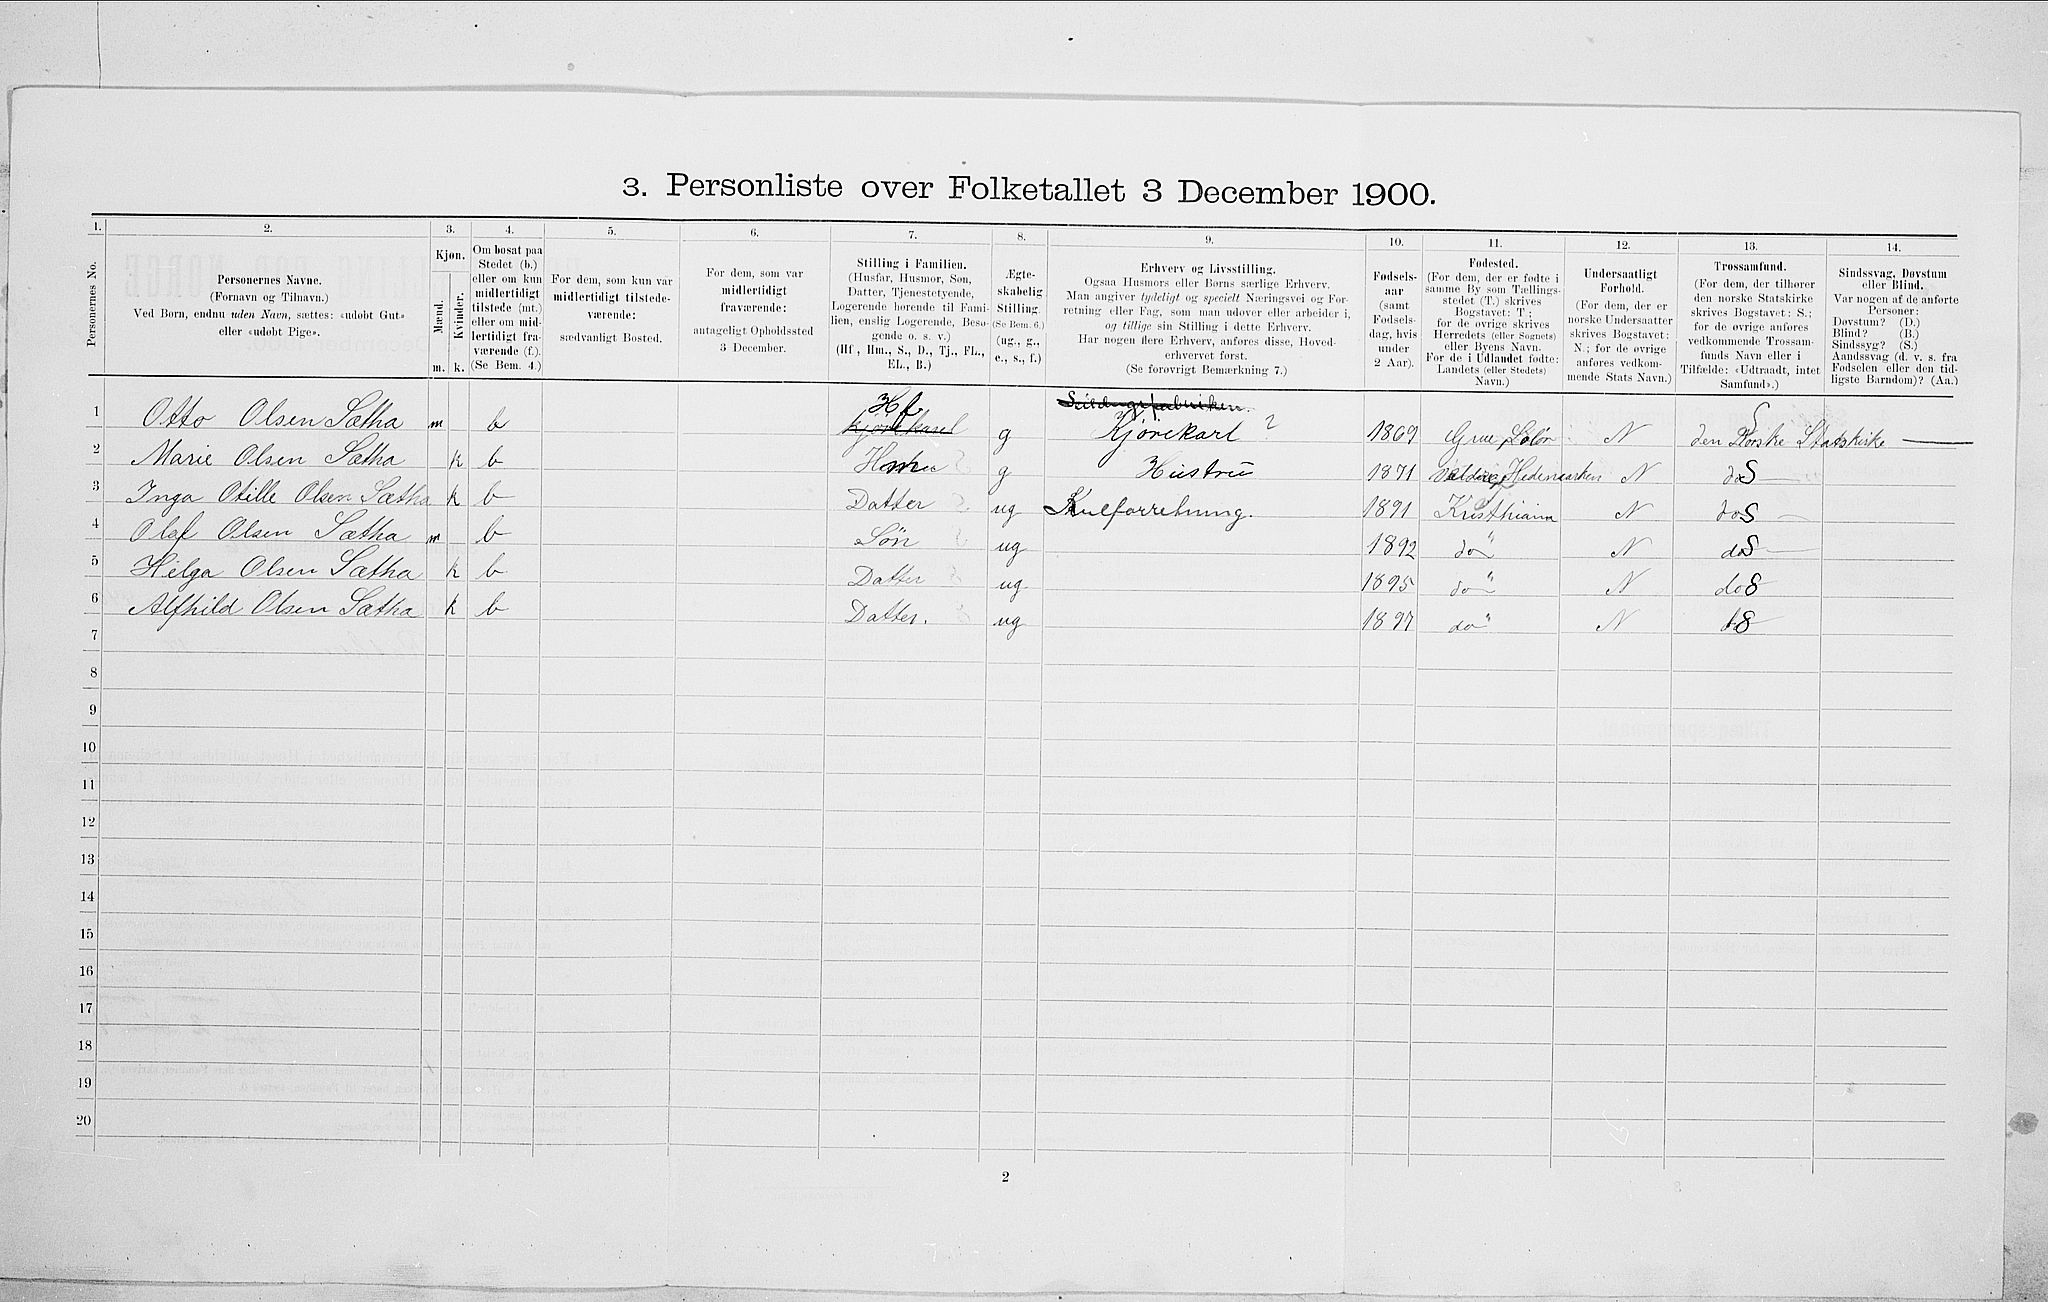 3. Personliste over Folketallet 3 December 1900.
1. 2. 3. 4. 5. 6. 7. 8. 9. 10. 11. 12. 13. 14.
Personernes No.
Personernes Navne.
(Fornavn og Tilnavn.)
Ved Børn, endnu uden Navn, sættes: «udøbt Gut»
eller «udøbt Pige».
Kjøn.
Mænd.
Kvinder.
m. k.
Om bosat paa
Stedet (b.)
eller om kun
midlertidigt
tilstede (mt.)
eller om mid-
lertidigt fra-
værende (f.).
(Se Bem. 4.)
For dem, som kun var
midlertidigt tilstede-
værende:
sædvanligt Bosted.
For dem, som var
midlertidigt
fraværende:
antageligt Opholdssted
3 December.
Stilling i Familien.
(Husfar, Husmor, Søn,
Datter, Tjenestetyende,
Logerende hørende til Fami-
lien, enslig Logerende, Besø-
gende o. s. v.)
(Hf., Hm., S., D., Tj., FL.,
EL., B.)
Ægte-
skabelig
Stilling.
(Se Bem. 6.)
(ug., g.,
e., s., f.)
Erhverv og Livsstilling.
Ogsaa Husmors eller Børns særlige Erhverv.
Man angiver tydeligt og specielt Næringsvei og For-
retning eller Fag, som man udøver eller arbeider i,
og tillige sin Stilling i dette Erhverv.
Har nogen flere Erhverv, anføres disse, Hoved-
erhvervet først.
(Se forøvrigt Bemærkning 7.)
Fødsels-
aar
(samt
Fødsels-
dag, hvis
under
2 Aar).
Fødested.
(For dem, der er fødte i
samme By som Tællings-
stedet (T.) skrives
Bogstavet: T;
for de øvrige skrives
Herredets (eller Sognets)
eller Byens Navn.
For de i Udlandet fødte:
Landets (eller Stedets)
Navn.)
Undersaatligt
Forhold.
(For dem, der er
norske Undersaatter
skrives Bogstavet:
N.; for de øvrige
anføres vedkom-
mende Stats Navn.)
Trossamfund.
(For dem, der tilhører
den norske Statskirke
skrives Bogstavet: S.;
for de øvrige anføres
vedkommende Trossam-
funds Navn eller i
Tilfælde: «Udtraadt, intet
Samfund».)
Sindssvag, Døvstum
eller Blind.
Var nogen af de anførte
Personer:
Døvstum? (D.)
Blind? (B.)
Sindssyg? (S.)
Aandssvag (d. v. s. fra
Fødselen eller den tid-
ligste Barndom)? (Aa.)
1 Otto Olsen Sætha m b Hf Kjörekarl g Kjörekarl ? 1869 Grue Solör N S den Norske Statskirke
2 Marie Olsen Sætha k b g Hustru 1871 Hedemarken N do S
3 Inga Otille Olsen Sætha k b Datter ug Kulforretning. 1891 Kristhiania N do S
4 Olef Olsen Sætha m b Sön ug 1892 do " N do S
5 Helga Olsen Sætha k b Datter ug 1895 do " N do S
6 Alfhild Olsen Sætha k b Datter. ug 1897 do " N S
7
8
9
10
11
12
13
14
15
16
17
18
19
20
2